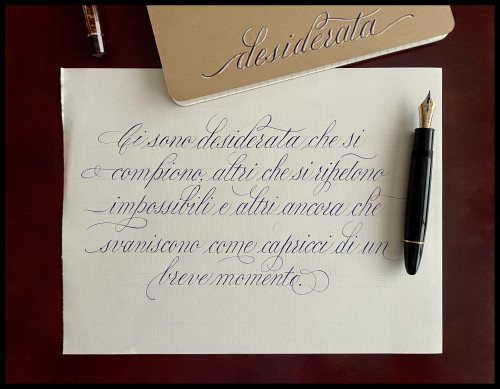 desiderata
Ci sono desiderata che si
compiono, altri che si ripetono
impossibili e altri ancora che
svaniscono come capricci di un
breve momento.